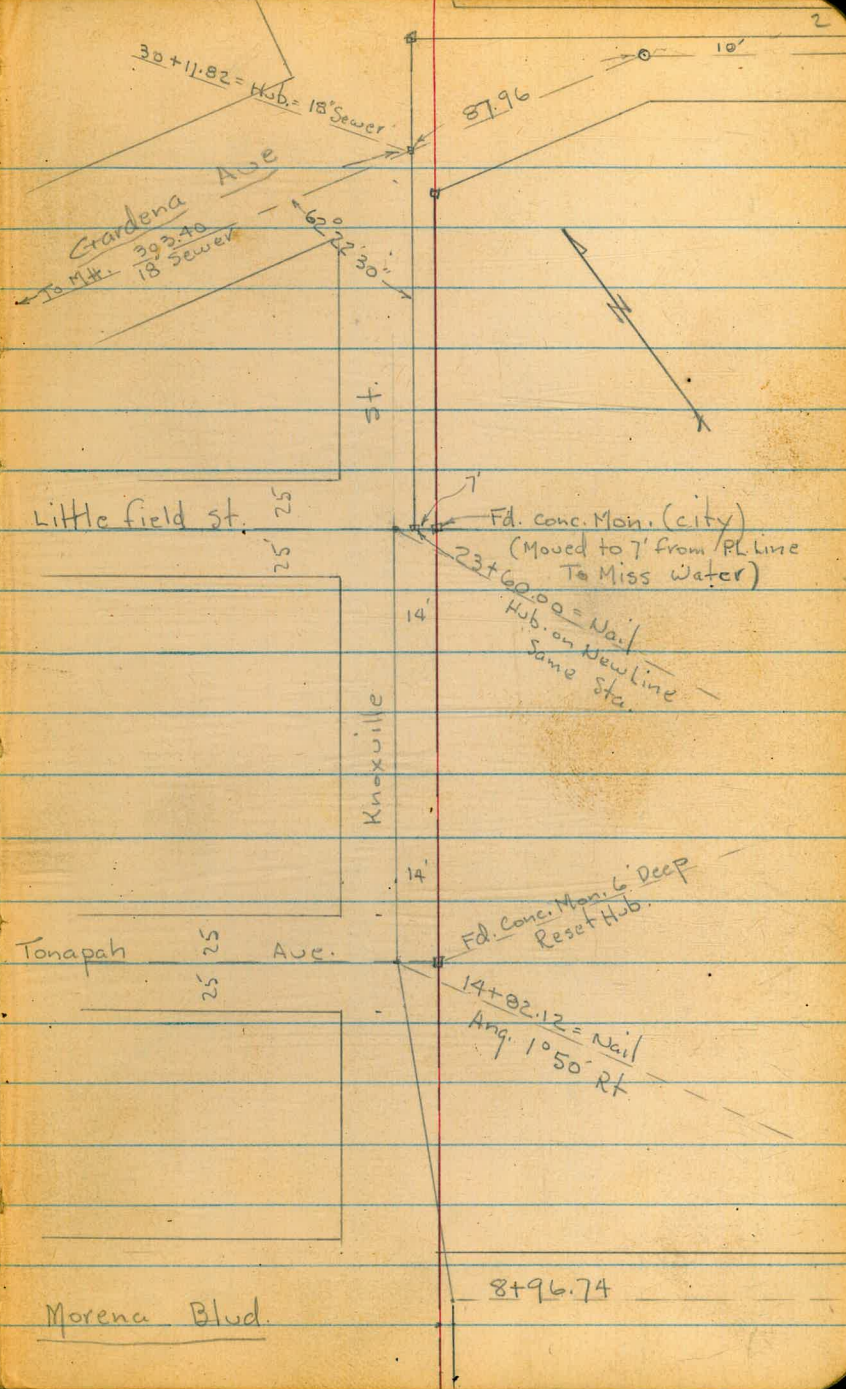 2
10'
30+11.82 = Hub. = 18" Sewer
87.96
Gardena Ave
62° 22' 30"
To M.H. 393.40
18" Sewer
St.
7'
25'
Little field St.
Fd. Conc. Mon. (City)
(Moved to 7' from PL Line
To Miss Water)
25'
23+60.00 = Nail
Hub. on New Line
Same Sta.
14'
Knoxville
14'
Fd. Conc. Mon. 6' Deep
Reset Hub.
25'
Tonapah Ave.
25'
14+82.12 = Nail
Ang. 1° 50' Rt
8+96.74
Morena Blvd.